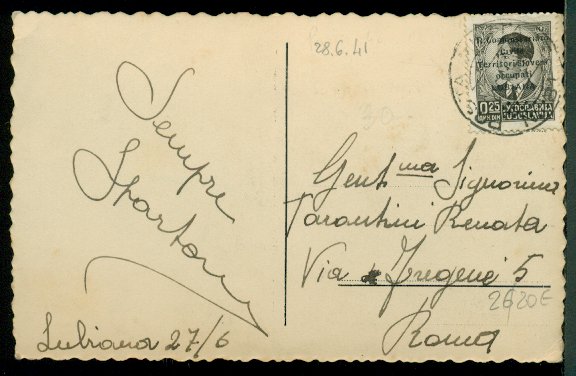 28.6.41
R. Commissariato
Civile
Territori Sloveni
occupati
LUBIANA
0.25
ЈУГОСЛАВИЈА
JUGOSLAVIJA
30
Sempre
Lubiana 27/6
Gent.ma Signorina
Tarantini Renata
Via Fregene 5
2620E
Roma